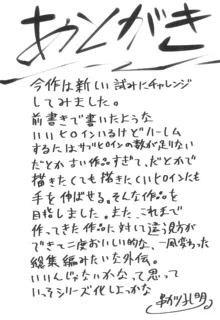 あとがき
今作は新しい試みにチャレンジ
してみました。
前書きで書いたような
いいヒロインいるけどハーレム
するにはサブヒロインの数が足りない
だとか さい作品すぎて、だとかで
描きたくても描きたくいヒロインにも
手を伸ばせる。そんな作品を
目指しました。また、これまで
作ってきた作品に対して違う見方が
できて一度おいしい的な、一風変わった
総集編みたいな外伝。
いいんじゃないかなって思って
いっそシリーズ化しよっかな